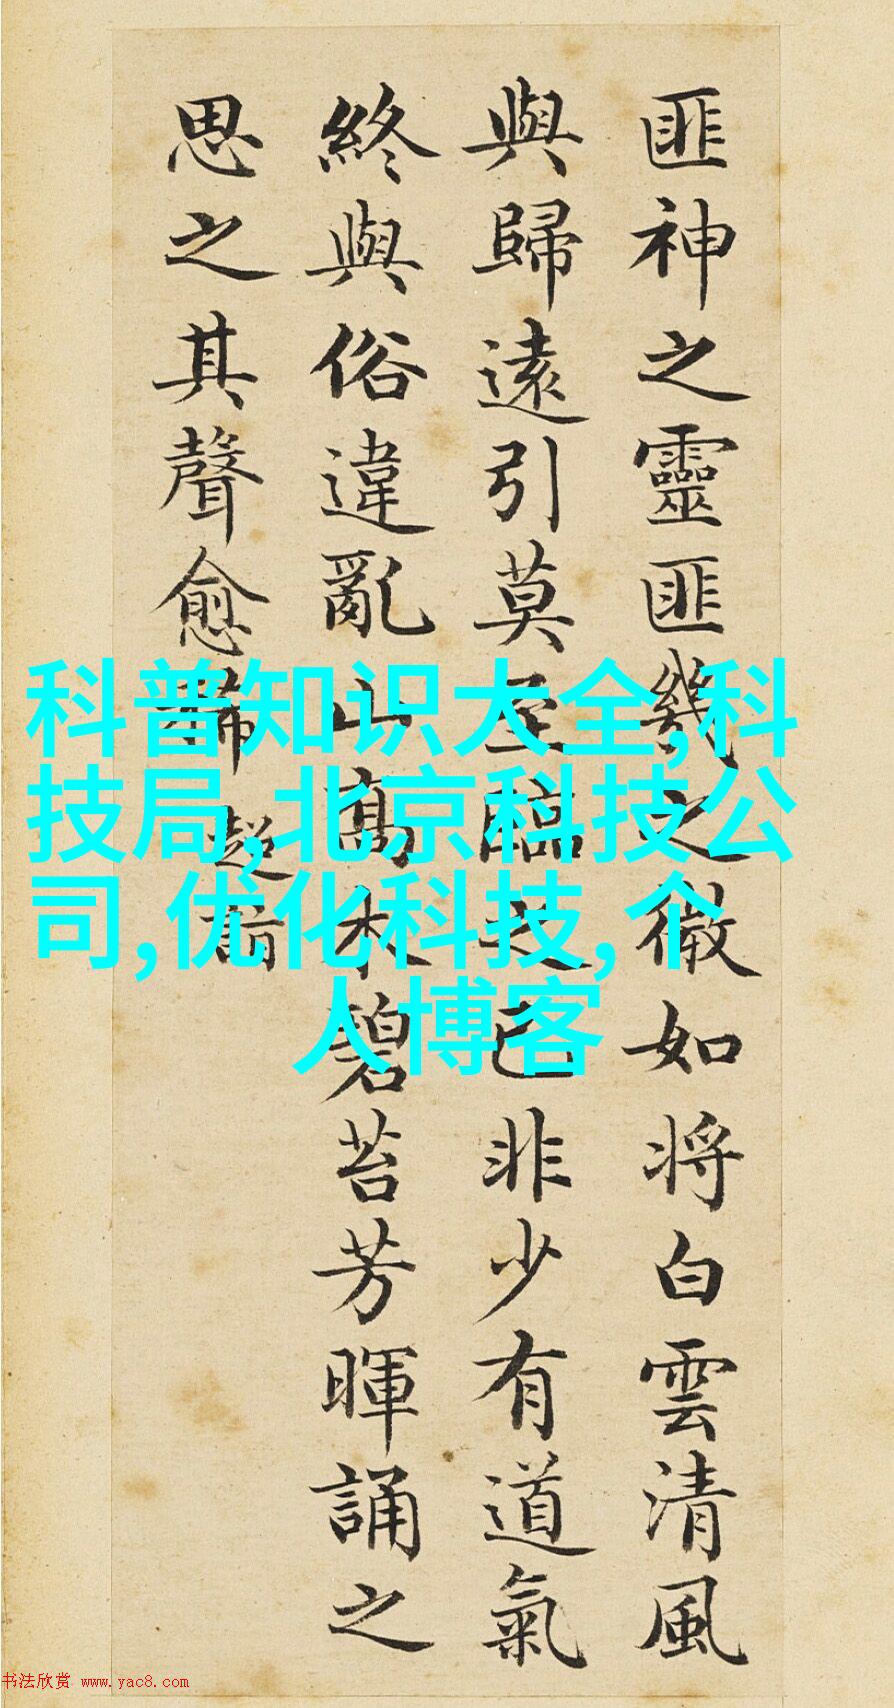 匪神之靈匪幾之微如将白雲清風
與歸遠引莫至臨之已非少有道氣
終與俗違亂山高木碧苔芳暉誦之
思之其聲愈希
超詣
科普知识大全,科
技局,北京科技公
司,优化科技,个
人博客
书法欣赏 www.yac8.com